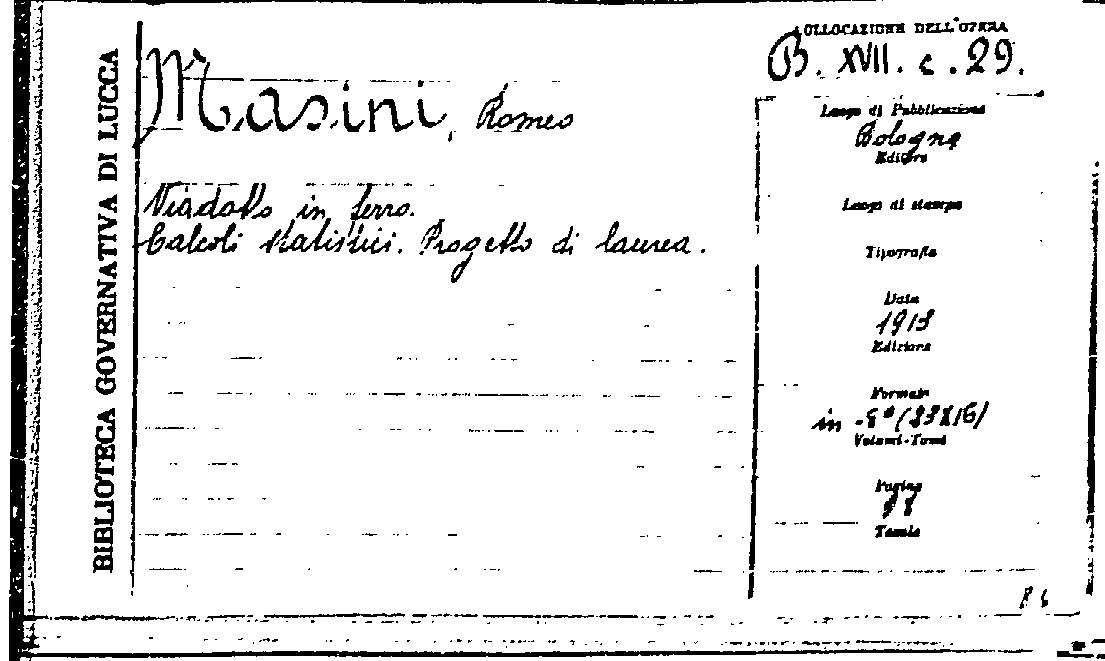 BIBLIOTECA GOVERNATIVA DI LUCCA
Masini, Romeo
Viadotto in ferro.
Calcoli statistici. Progetto di laurea.
COLLOCAZIONE DELL'OPERA
B. XVII. c. 29.
Luogo di Pubblicazione
Bologna
Editore
Luogo di stampa
Tipografia
Data
1913
Edizione
Formato
in -8° (
Volumi-Tomi
Pagine
Tavole